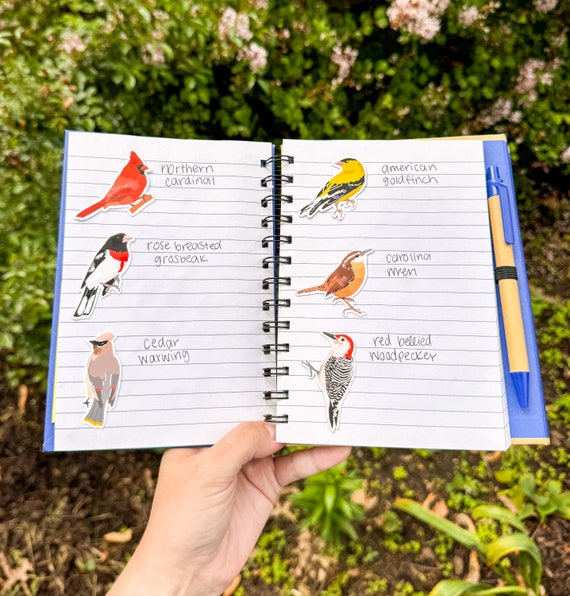 northern
cardinal
rose breasted
grosbeak
cedar
waxwing
american
goldfinch
carolina
wren
red bellied
woodpecker